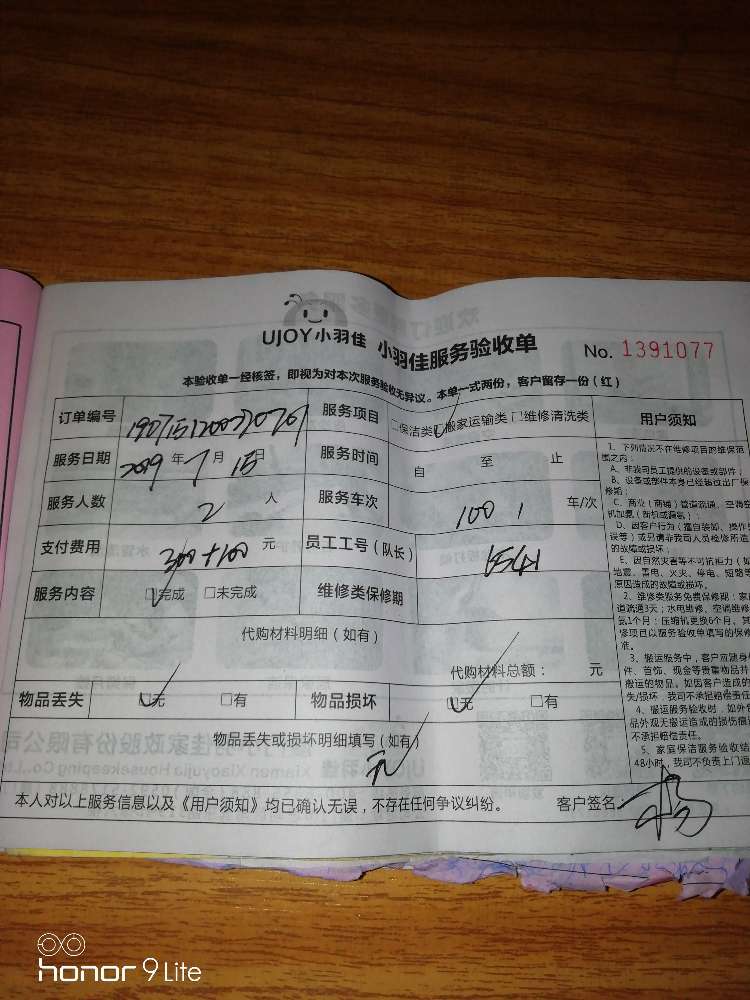 UJOY小羽佳 小羽佳服务验收单 No. 1391077
本验收单一经核签，即视为对本次服务验收无异议。本单一式两份，客户留存一份（红）
订单编号 服务项目 □保洁类 □搬家运输类 □维修清洗类 用户须知
服务日期 2019年7月15日 服务时间 自 至 止
服务人数 2人 服务车次 100 1 车/次
支付费用 300+100元 员工工号（队长） 1541
服务内容 □完成 □未完成 维修类保修期
代购材料明细（如有）
代购材料总额： 元
物品丢失 □无 □有 物品损坏 □无 □有
物品丢失或损坏明细填写（如有）
无
本人对以上服务信息以及《用户须知》均已确认无误，不存在任何争议纠纷。 客户签名
1、下列情况不在维修项目的维保范
围之内：
A、非我司员工提供的设备或部件；
B、设备或部件本身已经超过出厂保
修期；
C、商业（商铺）管道疏通、空调安
机加氨（新机或漏氨）；
D、因客户行为（擅自装卸、操作
误等）或另请非我司人员检修所造
的故障或损坏；
E、因自然灾害等不可抗拒力（如
地震、雷电、火灾、停电、短路等
原因造成的故障或损坏。
2、维修类服务免费保修期：家
道疏通3天；水电维修、空调维修
氨1个月；压缩机更换6个月，其
修项目以服务验收单填写的保修
准。
3、搬运服务中，客户应随身
件、首饰、现金等贵重物品并
搬运的物品。如因客户造成的
失/损坏，我司不承担赔偿责任
4、搬运服务验收时，如外
品外观无搬运造成的损伤痕
不承担赔偿责任。
5、家庭保洁服务验收结
48小时，我司不负责上门返
honor 9 Lite